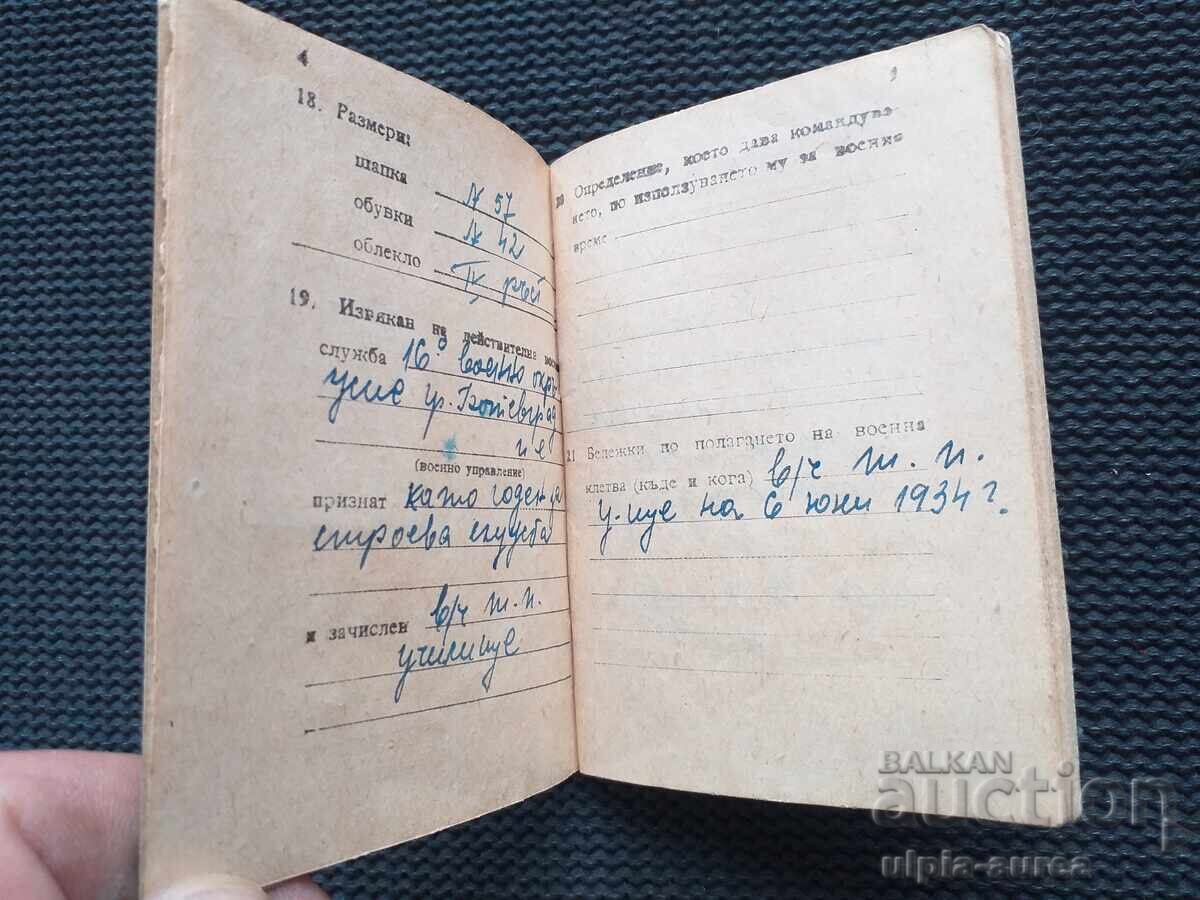 4
18. Размери:
шапка № 57
обувки № 42
облекло IV ръст
19. Извикан на действителна
служба 16 военно окр.
гр. Ботевград
(военно управление)
признат като годен за
строева служба
и зачислен в/ч т. п.
училище
Определение, което дава командува-
нето, по използуването му за военно
време
21 Бележки по полагането на военна
клетва (къде и кога) в/ч т. п.
у-ще на 6 юни 1934 г.
BALKAN
auction
ulpia-aurea